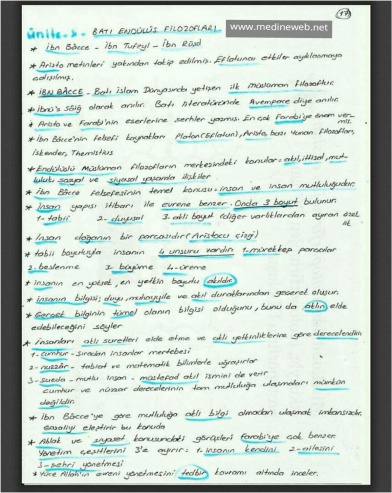 www.medineweb.net
17
ünite-3- BATI ENDÜLÜS FİLOZOFLARI
* İbn Bâcce - İbn Tufeyl - İbn Rüşd
* Aristo metinleri yakından takip edilmiş. Eflatuncu etkiler ayıklanmaya
çalışılmış.
* İBN BÂCCE - Batı İslam Dünyasında yetişen ilk müslüman filozoftur.
* İbnü's Sâiğ olarak anılır. Batı literatüründe Avempace diye anılır.
* Aristo ve Farabi'nin eserlerine şerhler yazmış. En çok Farabi'ye önem ver-
miş.
* İbn Bâcce'nin felsefi kaynakları Platon (Eflatun), Aristo, bazı Yunan filozofları,
İskender, Themistius
* Endülüslü Müslüman filozofların merkezindeki konular = akıl, ittisal, mut-
luluk, sosyal ve siyasal yaşamla ilişkiler
* İbn Bâcce felsefesinin temel konusu = insan ve insan mutluluğudur.
* İnsan yapısı itibarı ile evrene benzer. Onda 3 boyut bulunur
1- tabii 2- duyusal 3. akli boyut (diğer varlıklardan ayıran özel
lik
* İnsan doğanın bir parçasıdır (Aristocu çizgi)
* tabii boyutuyla insanın 4 unsuru vardır 1. mürekkep parçalar
2. beslenme 3. büyüme 4. üreme
* insanın en yüksek, en yetkin boyutu akıldır.
* insanın bilgisi; duyu, muhayyile ve akıl duraklarından geçerek oluşur.
* Gerçek bilginin tümel olanın bilgisi olduğunu, bunu da aklın elde
edebileceğini söyler
* İnsanları akli suretleri elde etme ve akli yetkinliklerine göre derecelendirir
1- cumhur - sıradan insanlar mertebesi
2- nuzzâr - tabiat ve matematik bilimlerle uğraşırlar
3- sueda - mutlu insan - müstefad akıl ismini de verir
cumhur ve nüzzar derecelerinin tam mutluluğa ulaşmaları mümkün
değildir
* İbn Bâcce'ye göre mutluluğa akli bilgi olmadan ulaşmak imkansızdır.
Gazaliyi eleştirir bu konuda
* Ahlak ve siyaset konusundaki görüşleri Farabi'ye çok benzer.
Yönetim çeşitlerini 3'e ayırır: 1- insanın kendini 2- ailesini
3- şehri yönetmesi
* Yüce Allah'ın evreni yönetmesini tedbir kavramı altında inceler.